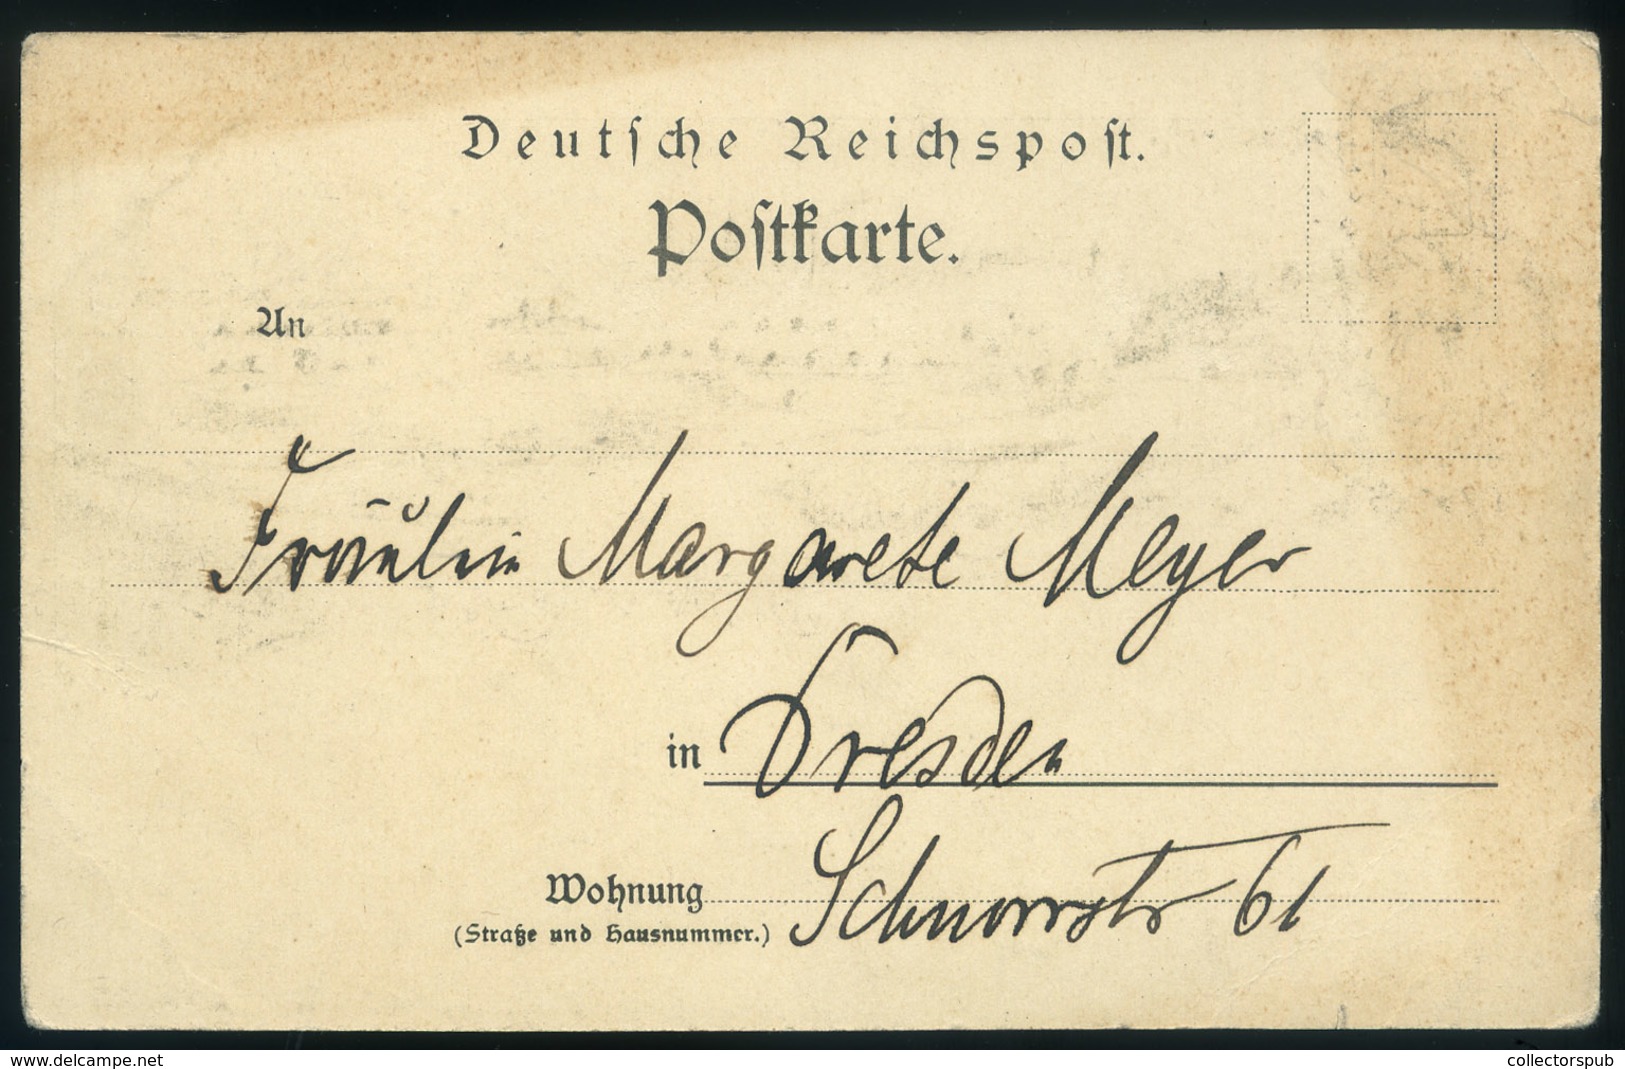 Deutsche Reichspost.
Postkarte.
An
Fräulein Margarete Meyer
in Dresden
Wohnung Schnorrstr 61
(Straße und Hausnummer.)
www.delcampe.net
collectorspub